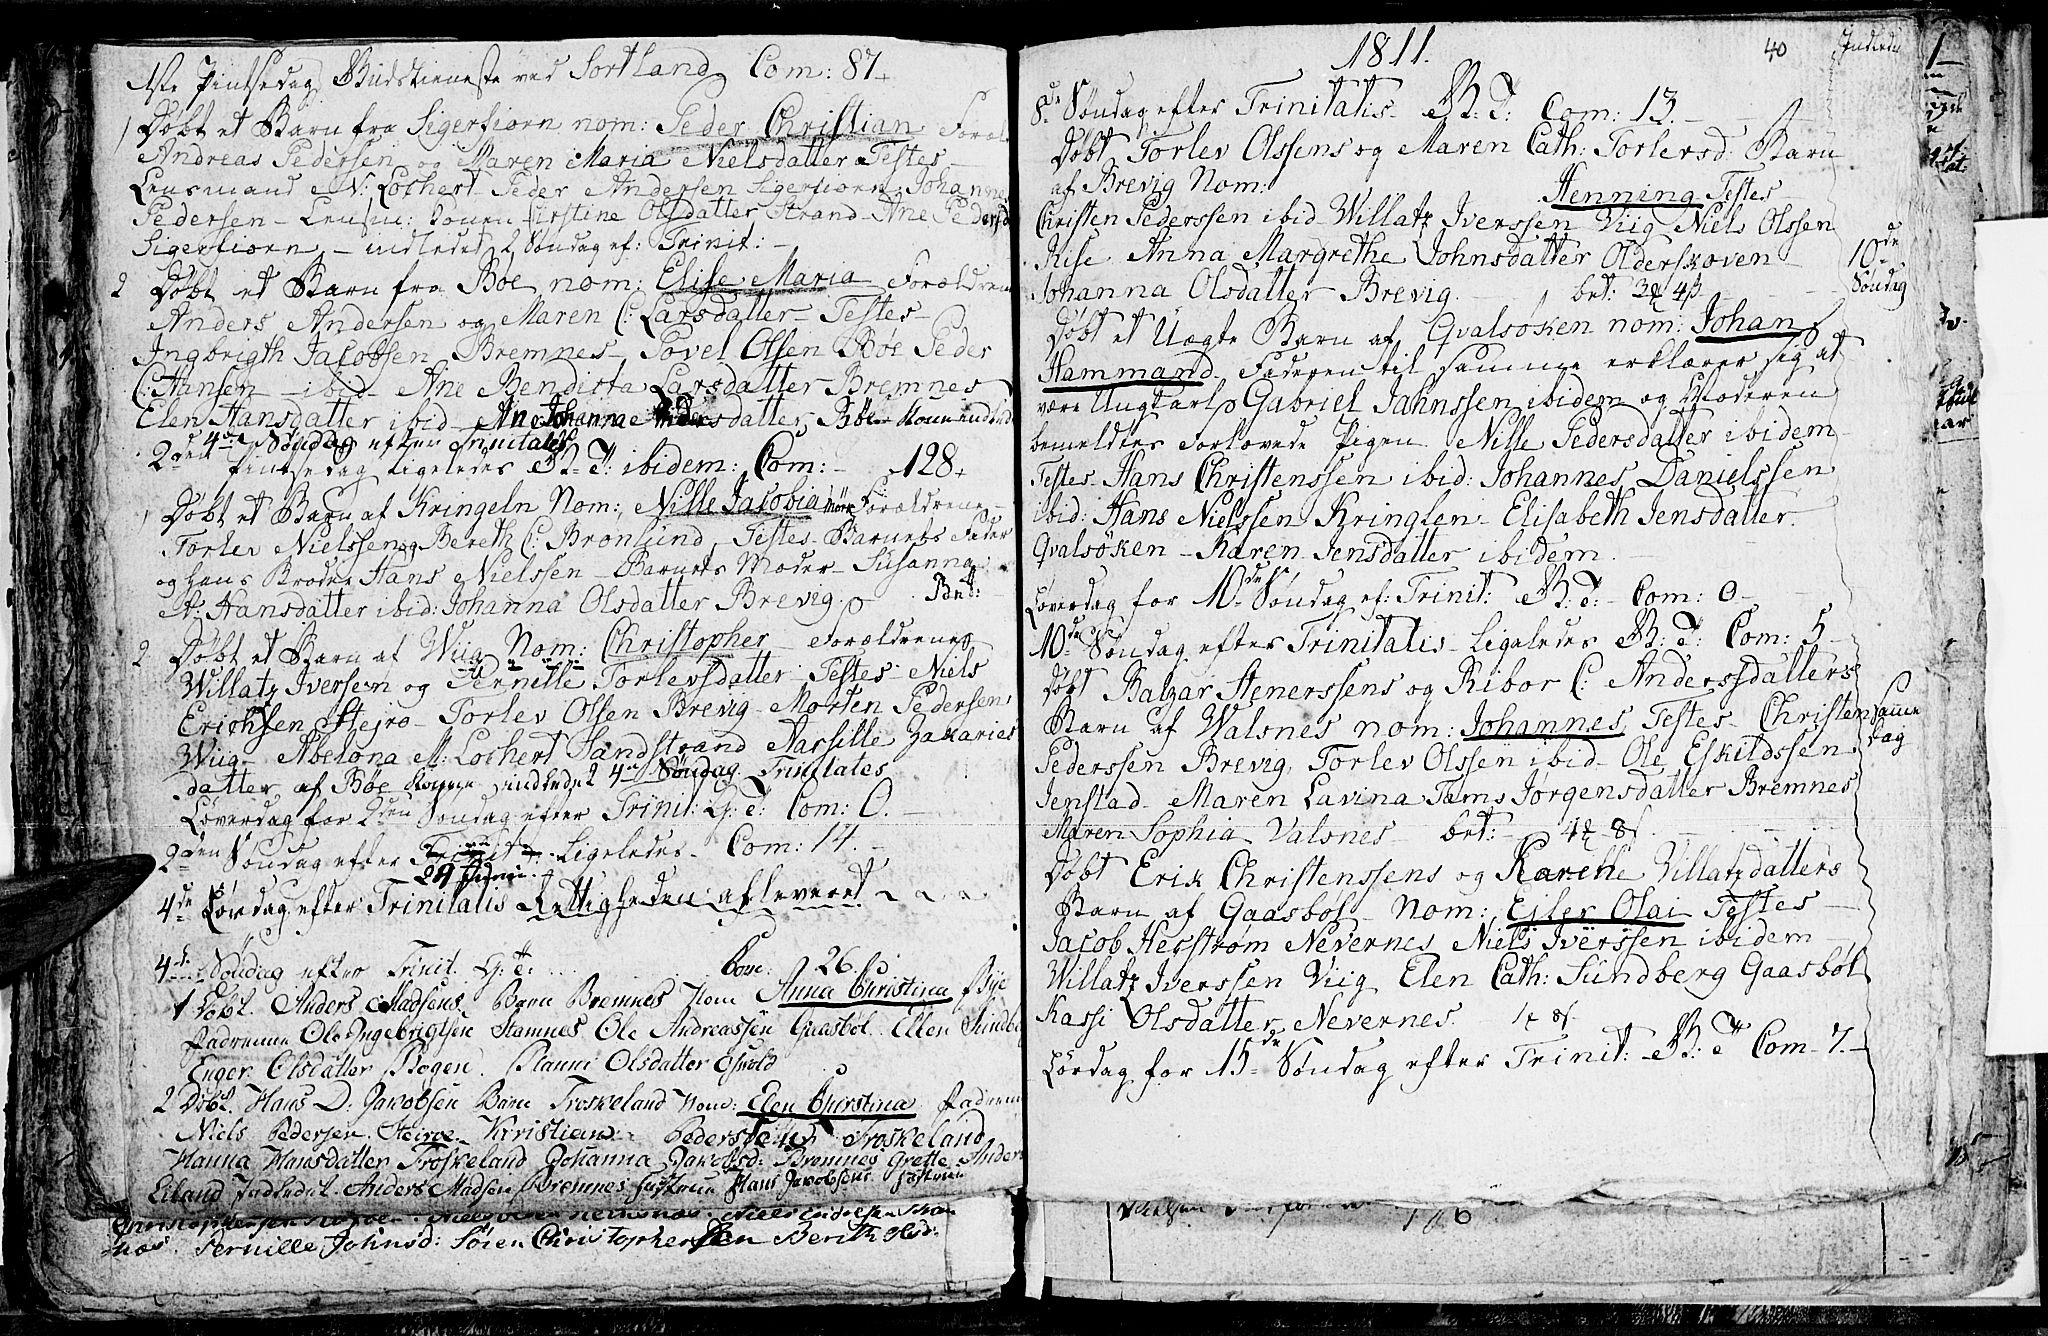 1ste Pintsedag Gudstieneste ved Sortland Com: 87
1 Døbt et Barn fra Sigerfiorn nom: Peder Christian Foræl
Andreas Pedersen og Maren Maria Nielsdatter Testes
Lensmand N: Lochert Peder Andersen Sigerfiorn Johanne
Pedersen - Lensm: Konen Kirstine Olsdatter Strand - Ane Pedersd
Sigerfiorn - indledet 2 Søndag ef: Trinit: -
2 Døbt et Barn fra Boe nom: Elise Maria Forældrene
Anders Andersen og Maren C: Larsdatter - Testes -
Ingbrigth Jacobsen Bremnes - Povel Olsen Bøe Peder
C: Hansen - ibid - Ane Bendicta Larsdatter Bremnes
Elen Hansdatter ibid - Ane Johanne Pedersdatter Böe Konen indled
4de Søndag efter Trinitates
2den Pintsedag Ligeledes B: T: ibidem: Com: - 128
1 Døbt et Barn af Kringeln Nom: Nille Jacobia Forældrene -
Torlev Nielssen og Bereth C: Bronlund, Testes - Barnets Fader
og hans Broder Hans Nielssen - Barnets Moder - Susanna
A: Hansdatter ibid: Johanna Olsdatter Brevig. Bet:
2 Døbt et Barn af Wiig Nom: Christopher - Forældrene
Willatz Iversen og Pernille Torlevsdatter - Testes - Niels
Erichsen Stejro - Torlev Olsen Brevig - Morten Pedersen
Wiig - Abelona M: Lochert Sandstrand Aarsille Zakaries
datter af Bøe Konen indledet 4de Søndag Trinitates
Løverdag for 2den Søndag efter Trinit: G: T: Com: 0. -
2den Søndag efter Trinit Ligeledes - Com: 14. -
29 Junii
4de Lørdag efter Trinitatis Rettigheden afleveret
4de Søndag efter Trinit. G: T: Com: 26.
1 Døbt. Anders Madsens Barn Bremnes Nom Anna Christina
Fadrerne Ole Ingebrigtsen Stamnes Ole Andreassen Gaasbøl. Ellen Sundbe
Enger Olsdatter Bogen. Hanni Olsdatter Osvold
2 Døbt. Hans D: Jakobsen Barn Froskeland Nom: Elen Christina Fadrene
Niels Pedersen. Steiroe. Kristian Pedersen Froskeland
Hanna Hansdatter Froskeland Johanna Jakobsd: Bremnes Grette Ander
Eiland Indledet. Anders Madsen Bremnes hustrue Hans Jacobsens hustrue
Pernille Johnsd: Søren Christophersen Berith Olsd:
1811.
40
Indledn
8de Søndag efter Trinitatis - B: T: Com: 13. -
Døbt Torlev Olssens og Maren Cath: Torlersd: Barn
af Brevig Nom: Henning Testes -
Christen Pederssen ibid - Willatz Iverssen Viig Niels Olssen
Rise Anna Margrethe Johnsdatter Olderskoven -
Johanna Olsdatter Brevig. - bet: 3 4
10de Søndag
Døbt et Uægte Barn af Qvalsøken nom: Johan
Hammand - Faderen til samme erklærer sig at
være Ungkarl Gabriel Jahnssen ibidem og Moderen
bemeldtes Forlovede Pigen Nille Pedersdatter ibidem -
Testes Hans Christenssen ibid: Johannes Danielssen
ibid: Hans Nielssen Kringlen - Elisabeth Jensdatter.
Qvalsöken - Karen Jensdatter ibidem. -
Løverdag for 10de Søndag ef: Trinit: B: T: - Com: 0 -
10de Søndag efter Trinitatis - Ligeledes B: T: Com: 5 -
Døbt Balzar Stenerssens og Ribor C: Anderssdatters
Barn af Walsnes nom: Johannes Testes - Christen
samme dag
Pederssen Brevig, Torlev Olssen ibid - Ole Eskildssen
Jenstad - Maren Lavina Tams Jørgensdatter Bremnes
Maren Sophia Valsnes - bet: - 4 8
Døbt Erik Christenssens og Karette Villatzdatters
Barn af Gaasbøl - Nom: Ejler Olai Testes -
Jacob Hegstrøm Nevernes, Niels Iverssen ibidem -
Willatz Iverssen Viig Elen Cath: Sundberg Gaasbøl
Kassi Olsdatter Nevernes.
Lördag for 15de Søndag efter Trinit: B: T: Com - 7. -